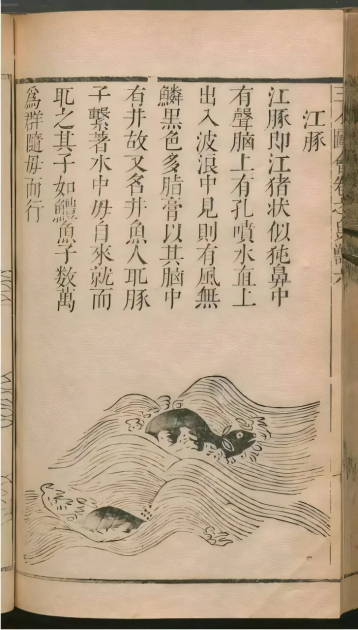 三才圖會
江豚
江豚即江猪状似㹠鼻中
有聲腦上有孔噴水直上
出入波浪中見則有風無
鱗黑色多脂膏以其腦中
有井故又名井魚人取豚
子繫著水中母自來就而
取之其子如鱧魚子数萬
為群隨母而行